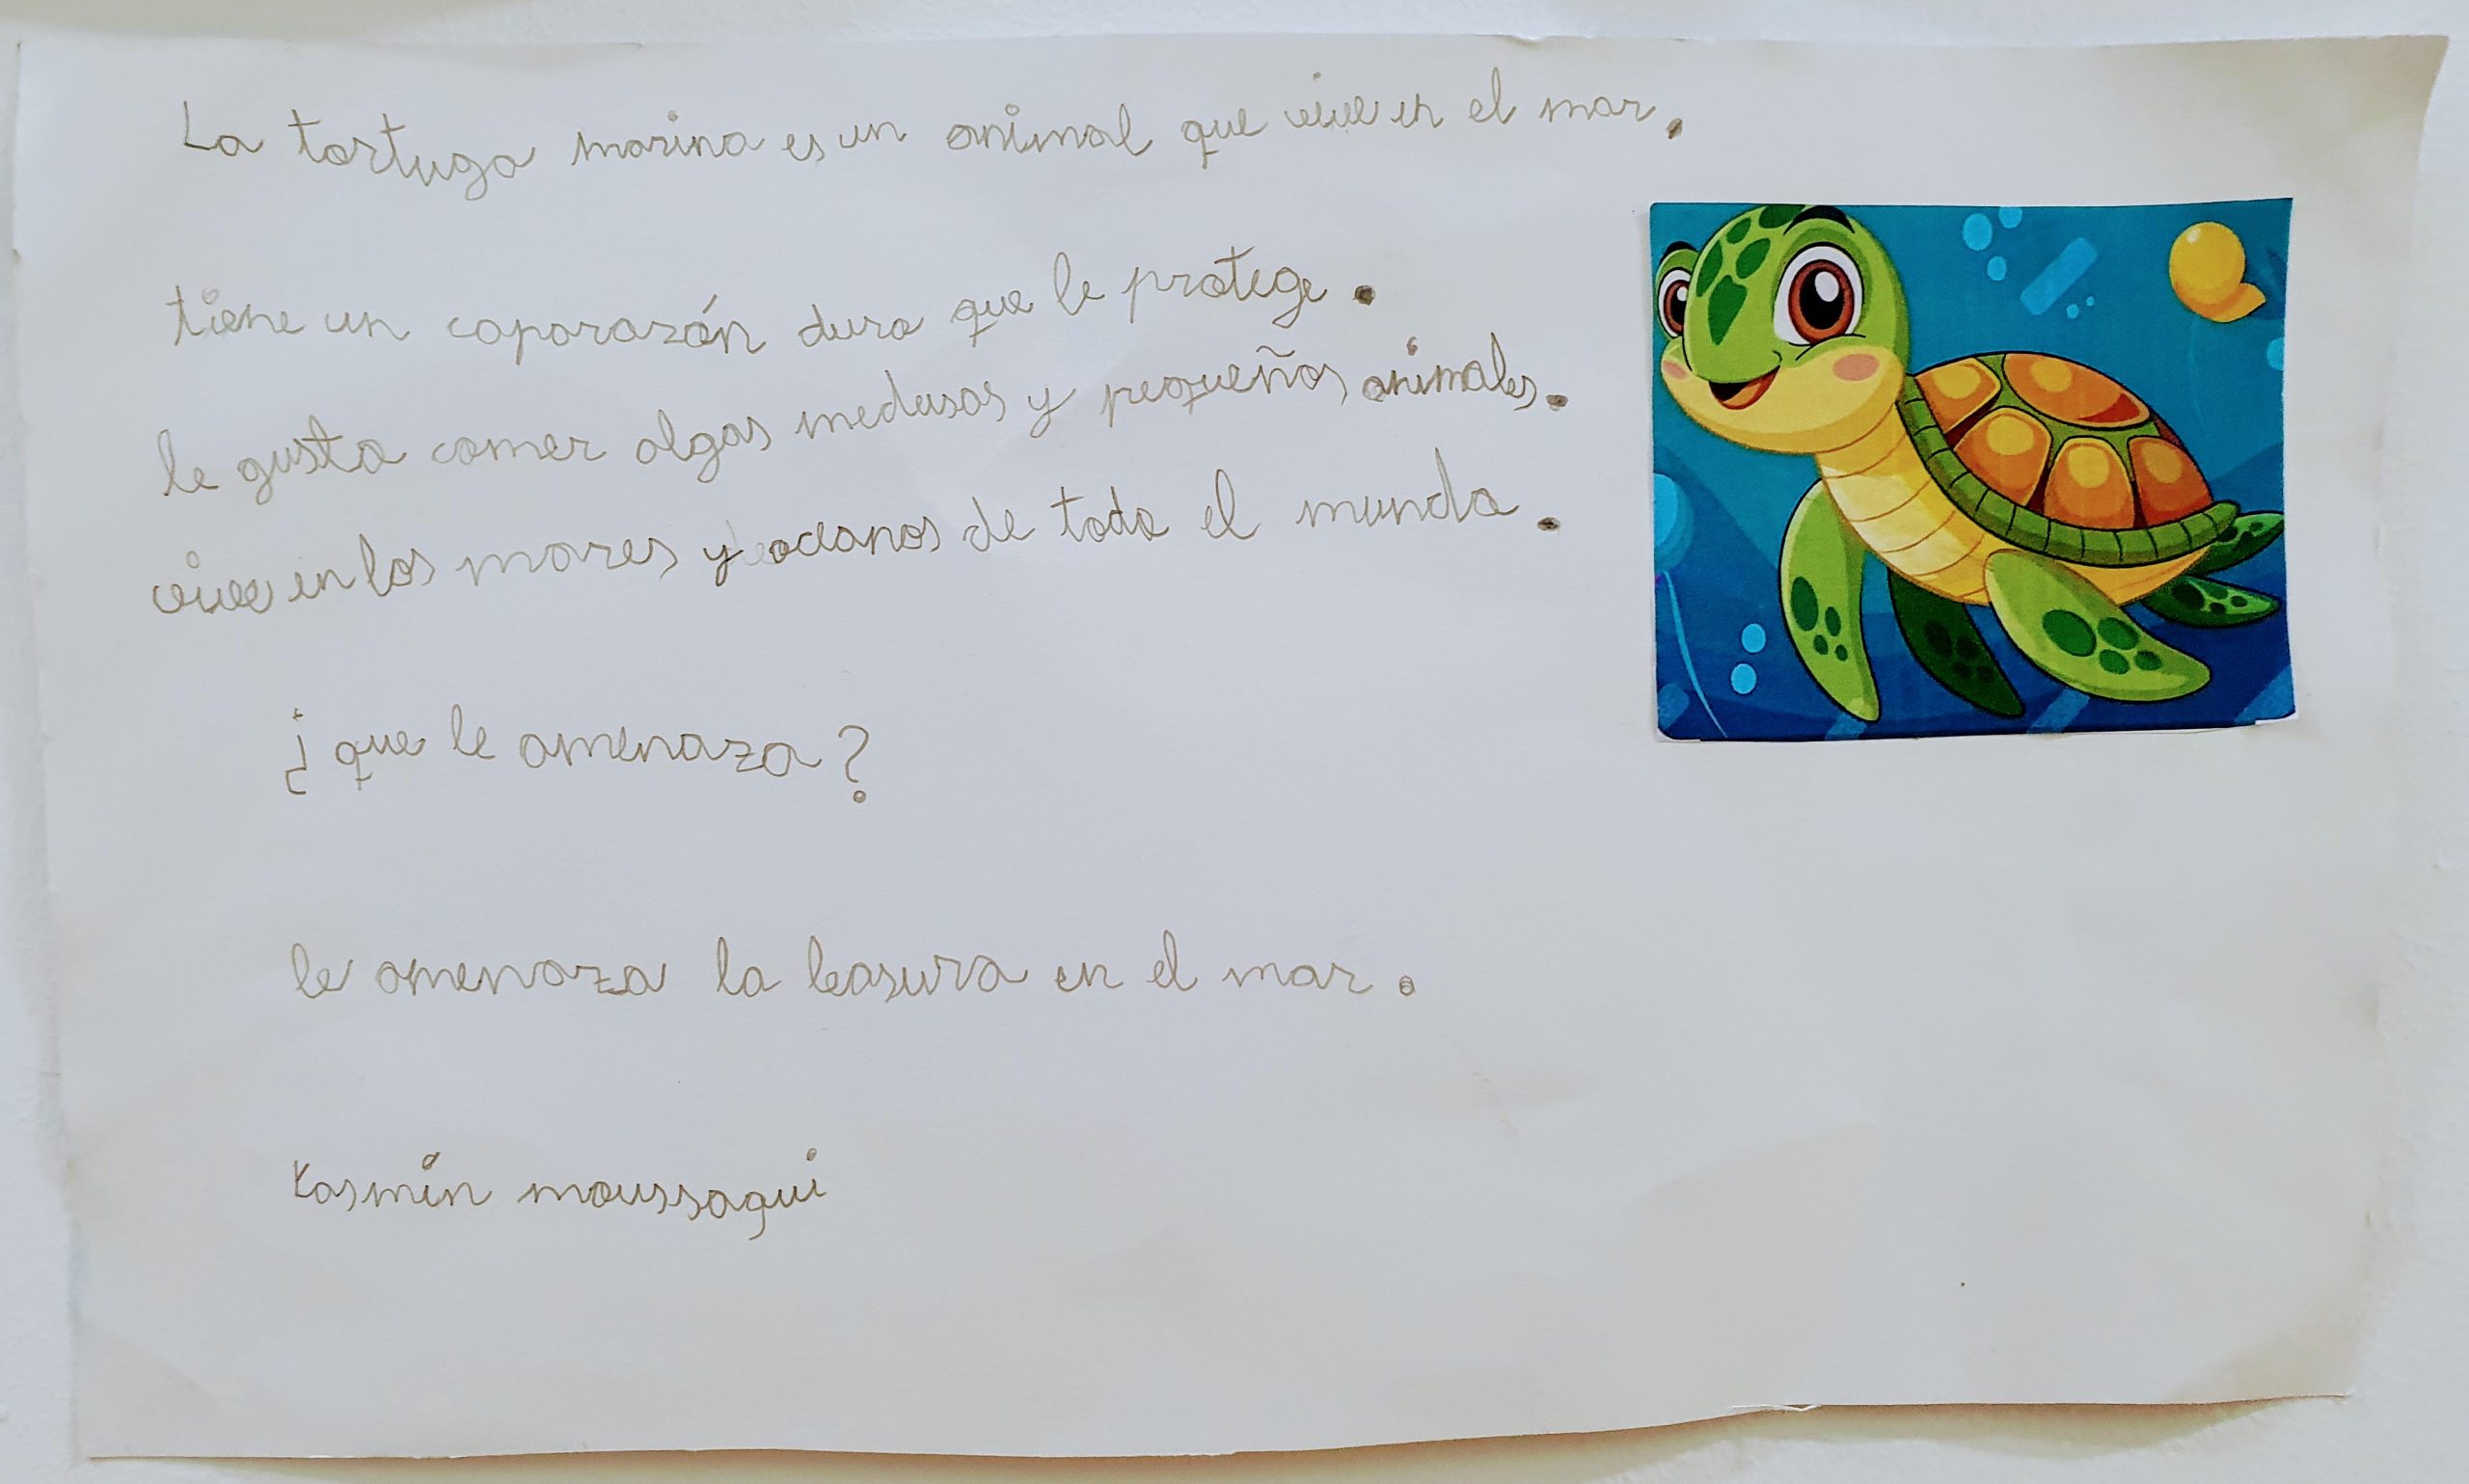 La tortuga marina es un animal que vive en el mar.
tiene un caparazón duro que le protege.
le gusta comer algas medusas y pequeños animales.
vive en los mares y oceanos de todo el mundo.
¿que le amenaza?
le amenaza la basura en el mar.
Yasmin moussaqui